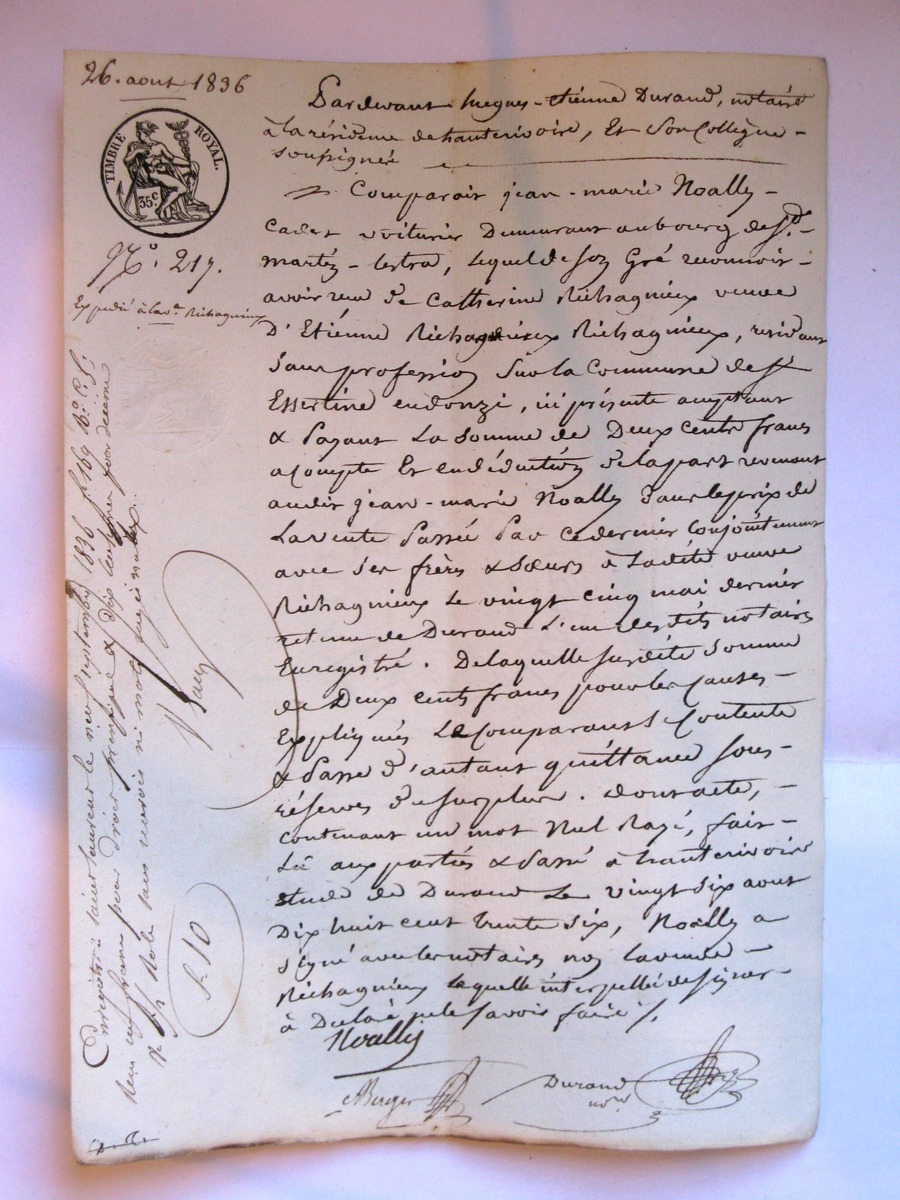 26. aout 1836
TIMBRE ROYAL.
35 c.
N.° 217.
Expédié à la v.e Richagnieux
Pardevant hugues-etiénne Durand, notaire
à la résidence de hauterivoire, Et Son Collégue -
soussignés
Comparait jean-marie Noally -
Cadet voiturier Demeurant au bourg de St.
martin-lestra, lequel de son Gré reconnoit -
avoir recu de Catherine Richagnieux veuve
D'Etiénne Richagnieux, residant
Sans profession Sur la Commune de St
Essertine en donzi, ici présente acceptant
& Payant La Somme de Deux cents francs
acompte Et en déduction de la part revenant
audit jean-marie Noally Dans le prix de
La vente Passée Par ce dernier Conjointement
avec Ses frères & Sœurs à Ladite veuve
Richagnieux Le vingt cinq mai dernier
retenue de Durand L'un desdits notaires
Enregistré. De laquelle Susdite Somme
de Deux cents francs pour les causes -
Expliqués Le Comparant Se Contente
& Passe d'autant quittance sous -
réserves du Surplus. dont acte, -
contenant un mot Nul Rayé, fait -
Lû aux parties & Passé à hauterivoire
étude de Durand Le vingt Six aout
Dix huit cent trente Six, Noally a
Signé avec les notaires non la veuve -
Richagnieux laquelle interpellée de Signer -
à Déclaré ne le Savoir faire ./.
Noally
Berger
Durand
no.re
Enregistré à saint laurent le neuf septembre 1836 f.° 169 R.° C. 5.
Reçu un franc pour droit principal & dix centimes pour decime
Sur Role sans renvois ni mots
f. 10